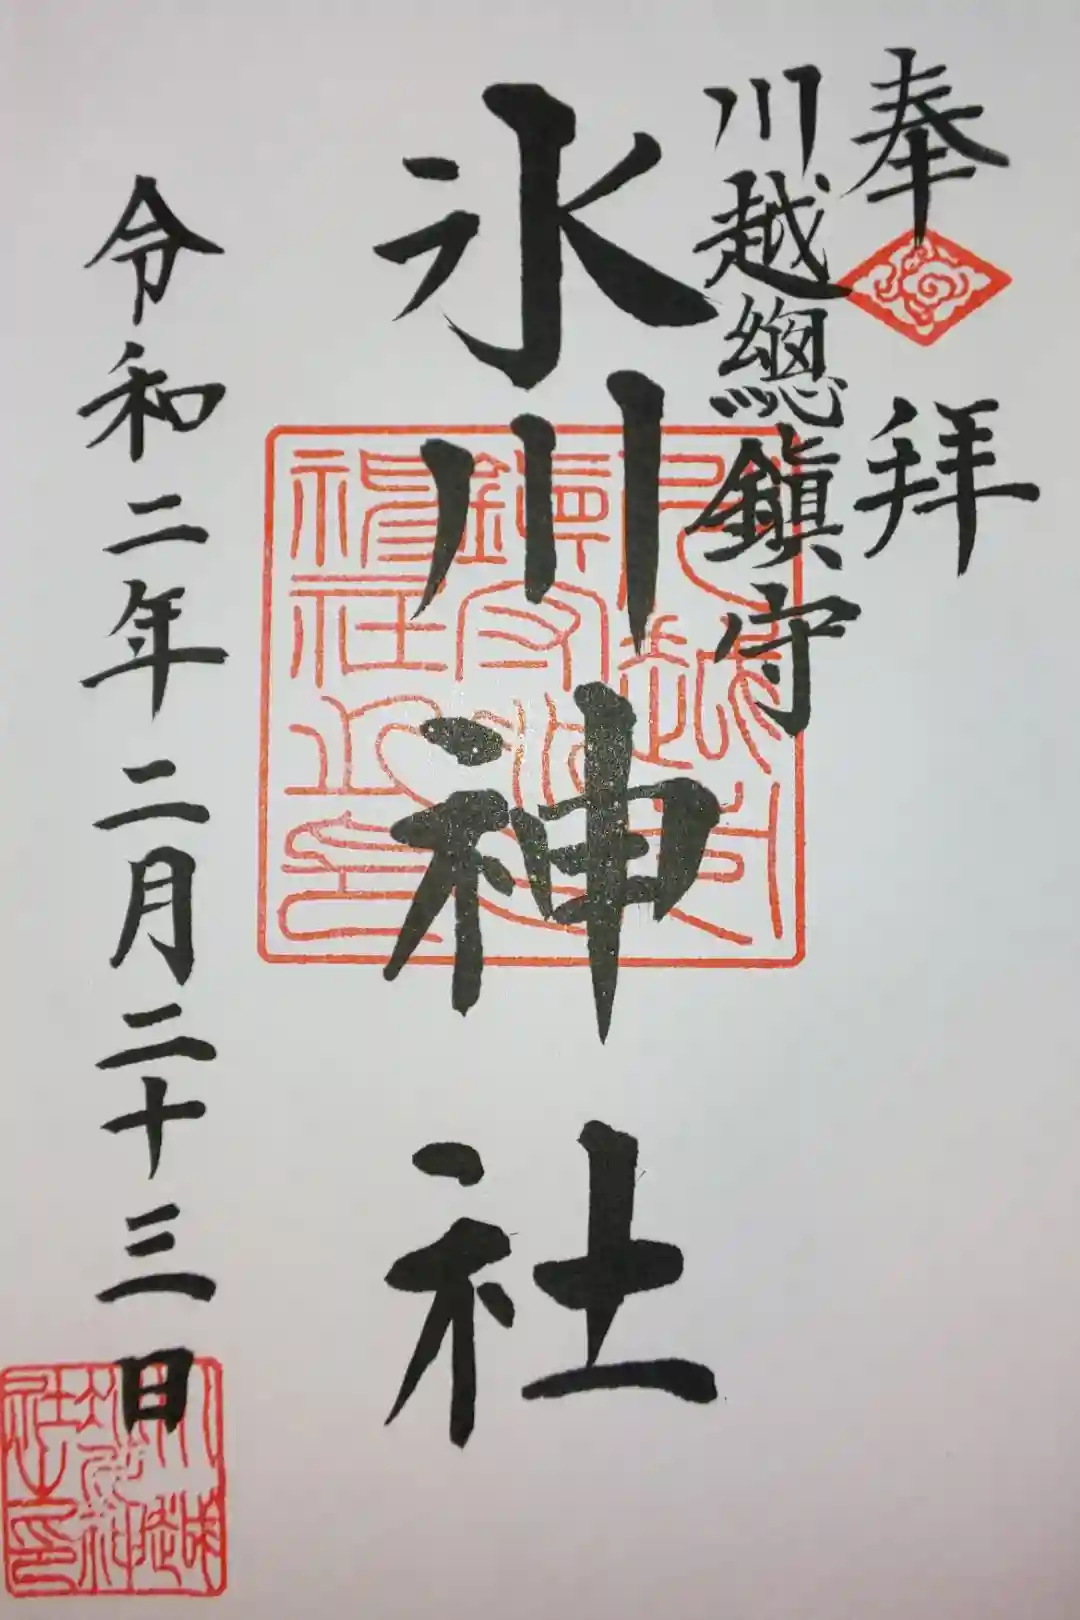 奉拜
川越總鎮守
氷川神社
令和二年二月二十三日